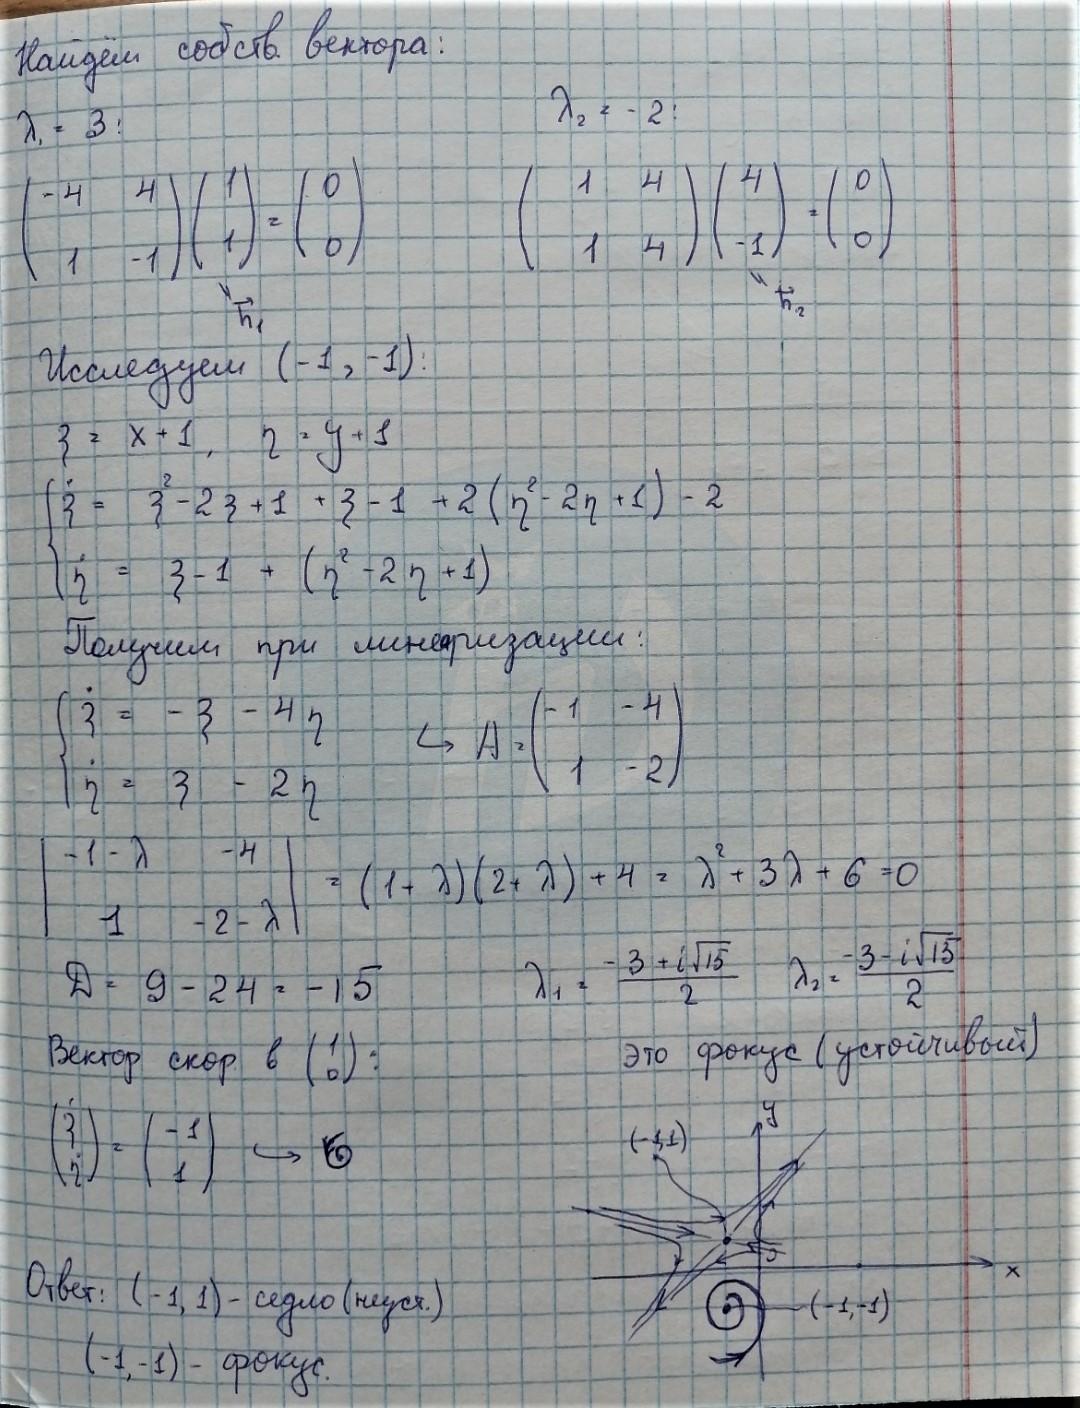 Найдём собств. вектора:
λ₁ = 3: λ₂ = -2:
( -4 4 ; 1 -1 ) ( 1 ; 1 ) = ( 0 ; 0 ) ( 1 4 ; 1 4 ) ( 4 ; -1 ) = ( 0 ; 0 )
h⃗₁ h⃗₂
Исследуем (-1, -1):
ξ = x+1, η = y+1
ξ̇ = ξ² - 2ξ + 1 + ξ - 1 + 2(η² - 2η + 1) - 2
η̇ = ξ - 1 + (η² - 2η + 1)
Получим при линеаризации:
ξ̇ = -ξ - 4η
η̇ = ξ - 2η
↪ A = ( -1 -4 ; 1 -2 )
| -1-λ -4 ; 1 -2-λ | = (1+λ)(2+λ) + 4 = λ² + 3λ + 6 = 0
D = 9 - 24 = -15 λ₁ = (-3 + i√15)/2 λ₂ = (-3 - i√15)/2
Вектор скор в ( 1 ; 0 ): это фокус (устойчивый)
( ξ̇ ; η̇ ) = ( -1 ; 1 ) ↪
y
(-1,1)
x
(-1,-1)
Ответ: (-1, 1) - седло (неуст.)
(-1, -1) - фокус.